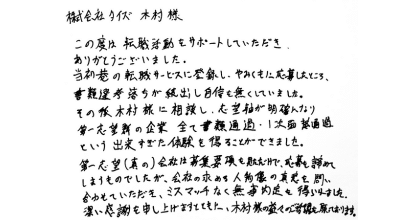 株式会社クイズ 木村 様
この度は 転職活動をサポートしていただき、
ありがとうございました。
当初巷の転職サービスに登録し、やみくもに応募したところ、
書類選考落ちが続出し自信を無くしていました。
その後木村様に相談し、志望軸が明確になり
第一志望群の企業 全て書類通過・1次面接通過
という出来すぎた体験を得ることができました。
第一志望(真の)会社は募集要項を眺むだけで、応募を諦めて
しまうものでしたが、会社の求める人物像の真意を問い
合わせていただき、ミスマッチなく無事内定を得られました。
深い感謝を申し上げますとともに、木村様の益々のご活躍を願っております。